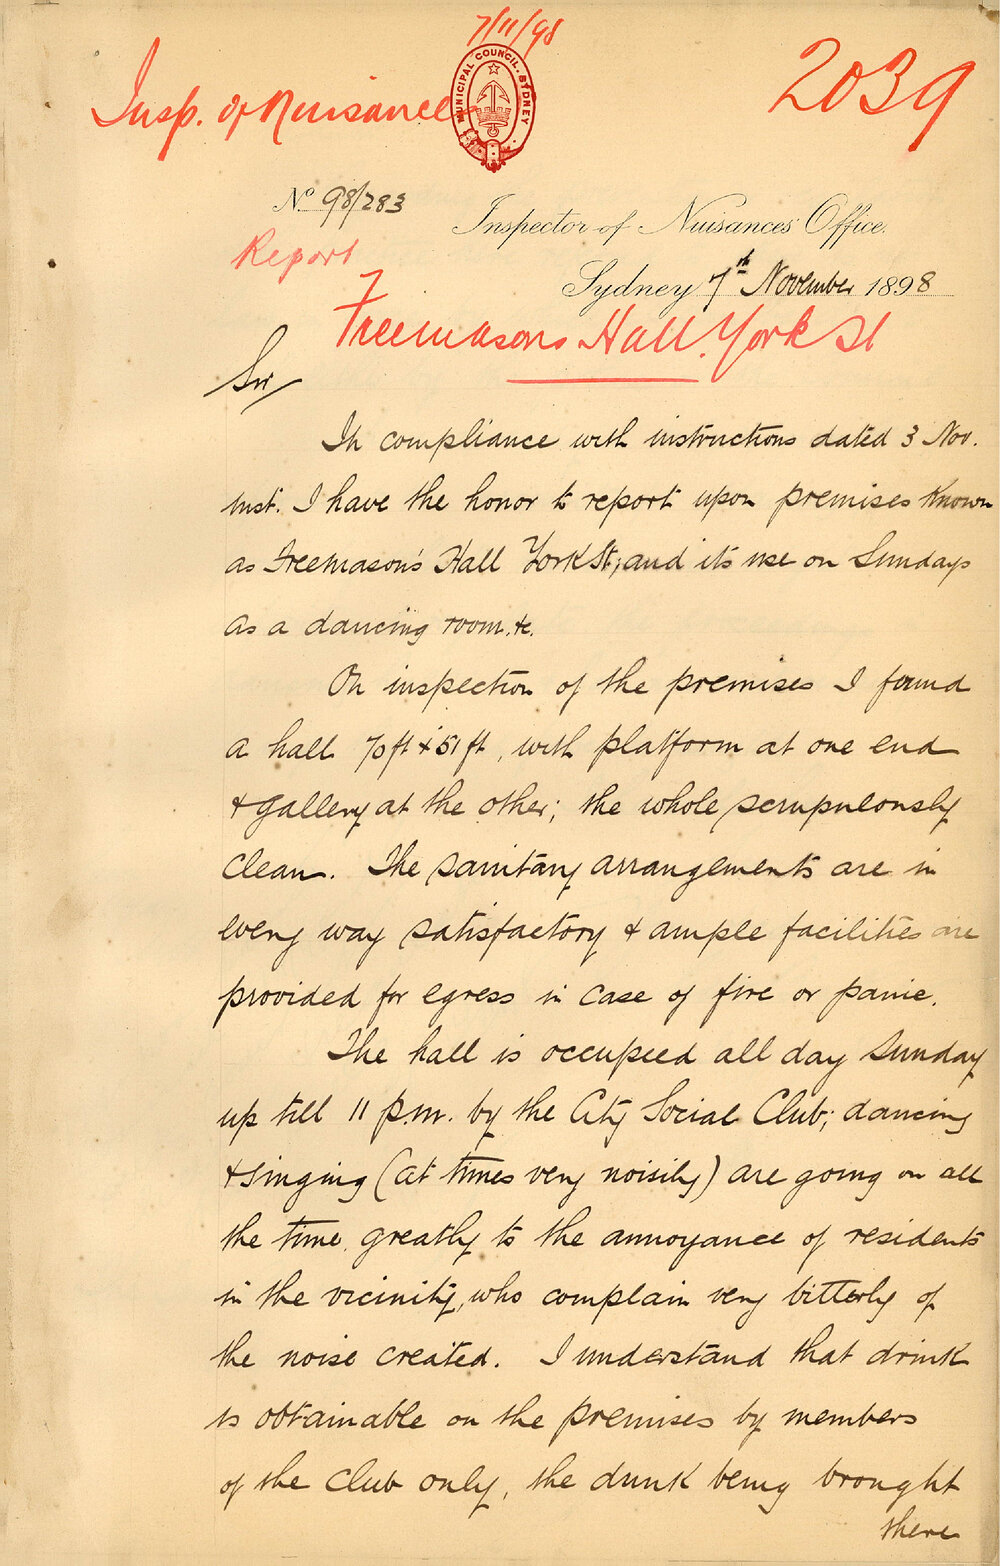 7/11/98
Insp. of Nuisances
MUNICIPAL COUNCIL. SYDNEY
2039
No 98/283
Inspector of Nuisances Office.
Report
Sydney 7th November 1898
Freemasons Hall. York St
Sir/
In compliance with instructions dated 3 Nov.
inst. I have the honor to report upon premises known
as Freemason's Hall York St; and its use on Sundays
as a dancing room. &c.
On inspection of the premises I found
a hall 70 ft x 51 ft, with platform at one end
& gallery at the other; the whole scrupulously
clean. The sanitary arrangements are in
every way satisfactory & ample facilities are
provided for egress in case of fire or panic.
The hall is occupied all day Sunday
up till 11 p.m. by the City Social Club; dancing
& singing (at times very noisily) are going on all
the time, greatly to the annoyance of residents
in the vicinity, who complain very bitterly of
the noise created. I understand that drink
is obtainable on the premises by members
of the Club only, the drink being brought
there